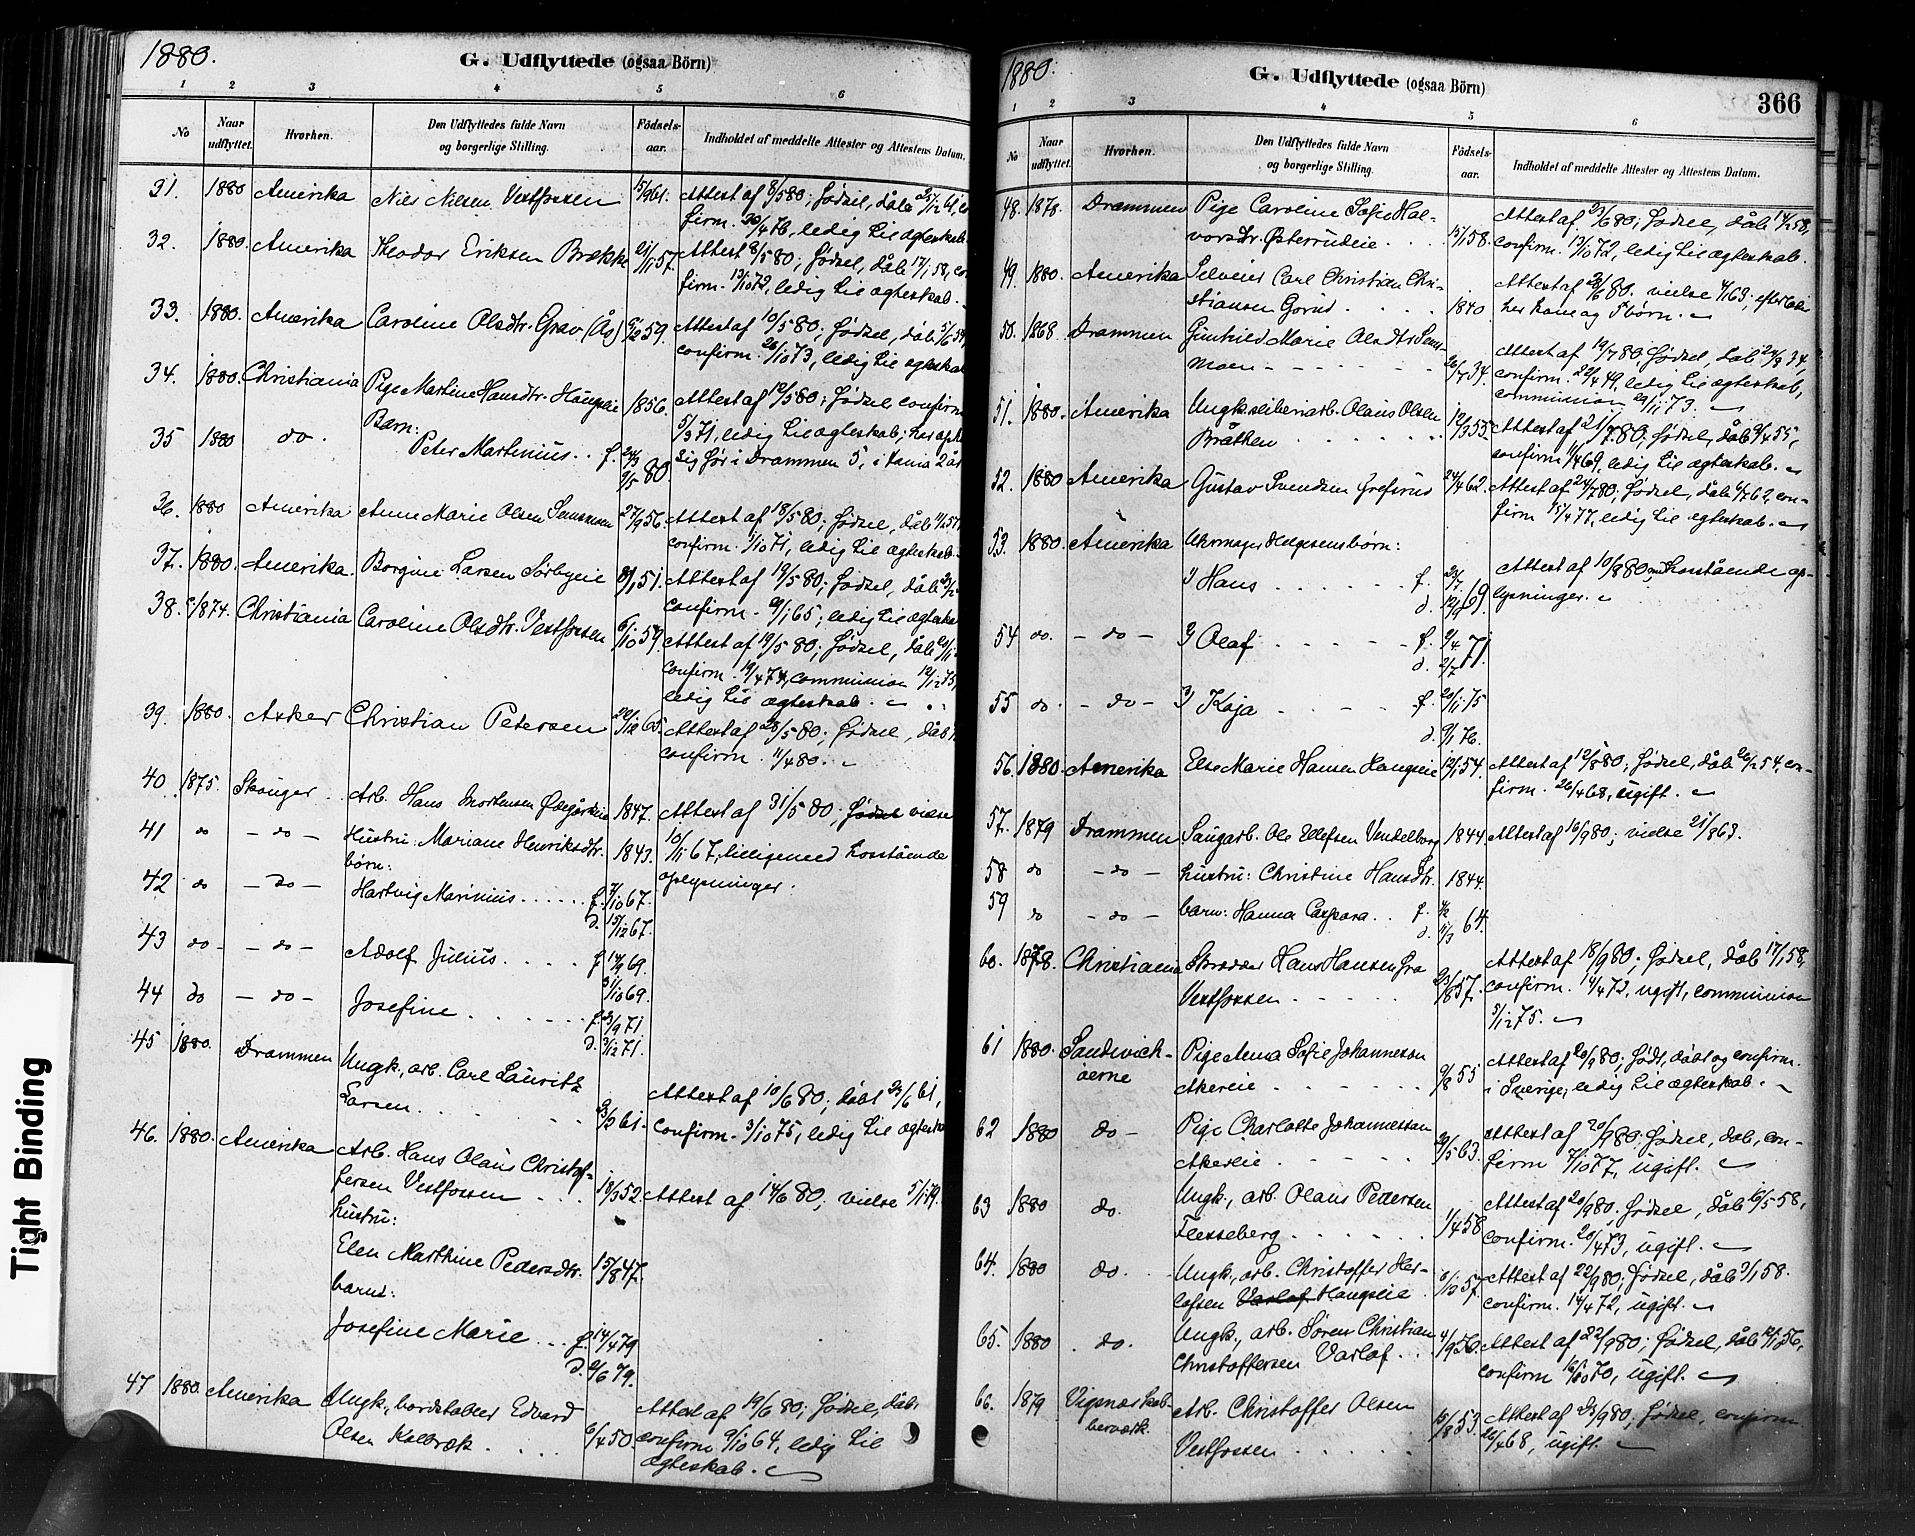 1880.
G. Udflyttede (ogsaa Börn)
1 2 3 4 5 6
No
Naar udflyttet.
Hvorhen.
Den Udflyttedes fulde Navn og borgerlige Stilling.
Födsels-aar.
Indholdet af meddelte Attester og Attestens Datum.
31. 1880 Amerika Nils Nilsen Vestfossen Attest af 8/5 80; Fødsel, dåb
confirm. ledig til ægteskab.
32. 1880. Amerika Theodor Eriksen Brække 57. Attest 8/5 80; Fødsel, dåb 17/1 58, con-
firm. 13/10 72, ledig til ægteskab.
33. 1880. Amerika Caroline Olsdtr. Grav (Ås) 59. Attest af 10/5 80; Fødsel, dåb
confirm. 26/10 73, ledig til ægteskab
34. 1880. Christiania Pige Martine Hansdtr. Haugseie 1856. Attest af 12/5 80; Fødsel confirm.
Barn:
5/3 71, ledig til ægteskab; har opholdt
35 1880 do. Peter Martinius.. f. 80 sig før i Drammen 5, i tania 2 år
36. 1880 Amerika Anne Marie Olsen Semsmoen 27/9 56. Attest af 18/5 80; Fødsel, dåb
confirm. 1/10 71, ledig til ægteskab.
37. 1880. Amerika. Borgine Larsen Sørbyeie 51. Attest af 19/5 80; Fødsel, dåb
confirm. 65; ledig til ægteskab
38. Christiania Caroline Olsdtr. Vestfossen 6/10 59. Attest af 19/5 80; Fødsel, dåb
confirm. 19/4 74, communion 12/12 75,
ledig til ægteskab.
39. 1880. Asker Christian Petersen 20/12 65. Attest af 20/5 80; Fødsel, dåb
confirm. 11/4 80.
40 1875. Skouger.. Arb. Hans Mortensen 1847. Attest af 31/5 80; Fødsel vielse
41 do - do - Hustru: Mariane Henriksdtr. 1843. 10/11 67, tilligemed hosstående
børn:
oplysninger.
42 do - do - Hartvig Marinius...... f. 7/10 67.
d. 15/12 67.
43 do - - do - Adolf Julius..... f 14/9 69.
31/10 69.
44 do - do - Josefine....... f. 23/9 71.
d. 3/12 71.
45 1880. Drammen Ungk., arb. Carl Lauritz
Larsen....... 61. Attest af 10/6 80; døbt 23/6 61,
confirm. 3/10 75, ledig til ægteskab
46. 1880. Amerika Arb. Hans Olaus Christof-
fersen Vestfossen... 18/3 52. Attest af 14/6 80; vielse 5/1 79.
hustru:
Elen Marthine Pedersdtr. 15/8 47.
barn:
Josefine Marie... f. 14/4 79
d. 8/6 79.
47 1880. Amerika Ungk., bordstabler Edvard
Olsen Kolbræk.... 6/4 50. Attest af 19/6 80; Fødsel, dåb,
confirm 9/10 64, ledig til
ægteskab.
1880.
G. Udflyttede (ogsaa Börn)
366
1 2 3 4 5 6
No
Naar udflyttet.
Hvorhen.
Den Udflyttedes fulde Navn og borgerlige Stilling.
Födsels-aar.
Indholdet af meddelte Attester og Attestens Datum.
48. 1878. Drammen Pige Caroline Sofie Hal-
vorsdtr. Østerrudeie... 15/1 58. Attest af 23/6 80; Fødsel, dåb 14/2 58,
confirm. 13/10 72, ledig til ægteskab.
49. 1880. Amerika Selveier Carl Christian Chri-
stiansen Gorud.... 1840 Attest af 80. vielse 63; efterlader
her kone og børn.
50. 1868 Drammen Gunhild Marie Olsdtr. Sems-
moen - - - - - 26/7 34. Attest af 19/7 80, Fødsel, dåb 24/8 34,
confirm. 22/4 49, ledig til ægteskab,
communion 29/11 73.
51. 1880. Amerika Ungk. sliberiarb. Olaus Olsen
Bråthen....... 12/3 55. Attest af 21/7 80; Fødsel, dåb 9/4 55,
confirm. 11/4 69, ledig til ægteskab.
52. 1880 Amerika Gustav Svendsen Grefsrud 24/4 62. Attest af 24/7 80; Fødsel, dåb 6/7 62, con-
firm 15/4 77, ledig til ægteskab.
53. 1880. Amerika Uhrmager Helgesens børn:
1) Hans..... f. 69 Attest af 10/8 80 om hosstående op-
d. 12/9 lysninger.
54 do. - do - 2) Olaf..... f. 9/4 71.
d. 2/7
55 do. - do - 3) Kaja..... f. 20/11 75
d. 9/1 76.
56. 1880. Amerika Else Marie Hansen Haugseie 12/1 54. Attest af 12/8 80; Fødsel, dåb 26/2 54, con-
firm. 26/4 68, ugift.
57. 1879 Drammen Saugarb. Ole Ellefsen Vendelborg 1844. Attest af 16/9 80; vielse 21/8 63.
58 do - do - hustru: Christine Hansdtr. 1844.
59 do - do - barn: Hanna Caspara.. f. 64.
d. 11/3
60. 1878. Christiania Skrædder Hans Hansen fra
Vestfossen..... 23/8 57. Attest af 18/9 80; Fødsel, dåb 17/1 58,
confirm. 14/4 72, ugift, communion
5/12 75.
61 1880. Sandwich-
øerne Pige Anna Sofie Johannesson
Akereie..... 9/8 55 Attest af 20/9 80; født, døbt og confirm.
i Sverige; ledig til ægteskab.
62 1880 do - Pige Charlotte Johannesson
Akereie...... 63. Attest af 20/9 80; Fødsel, dåb, con-
firm 7/10 77, ugift.
63 1880 do. Ungk., arb. Olaus Pedersen
Flesseberg...... 1/4 58 Attest af 20/9 80; Fødsel, dåb 16/5 58,
confirm. 20/4 73, ugift.
64. 1880 do. Ungk., arb. Christoffer Her-
lofsen Varlof Haugseie. 57. Attest af 22/9 80; Fødsel, dåb 3/1 58.
confirm. 14/4 72, ugift.
65. 1880. do. Ungk., arb. Søren Christian
Christoffersen Varlof... 4/9 56. Attest af 22/9 80; Fødsel, dåb 56,
confirm 70, ugift.
66. 1879 Vigsnæs kob-
berværk. Arb. Christoffer Olsen
Vestfossen...... 15/8 53. Attest af 23/9 80; Fødsel, confirm.
26/4 68, ugift.
Tight Binding